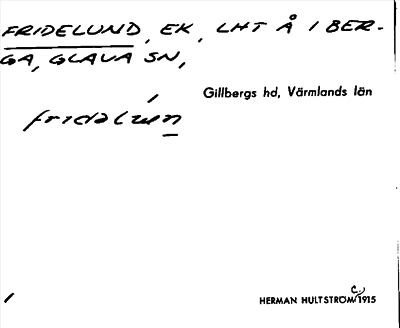 FRIDELUND, EK, LHT Å I BER-
GA, GLAVA SN,
Gillbergs hd, Värmlands län
HERMAN HULTSTRÖM C:a 1915